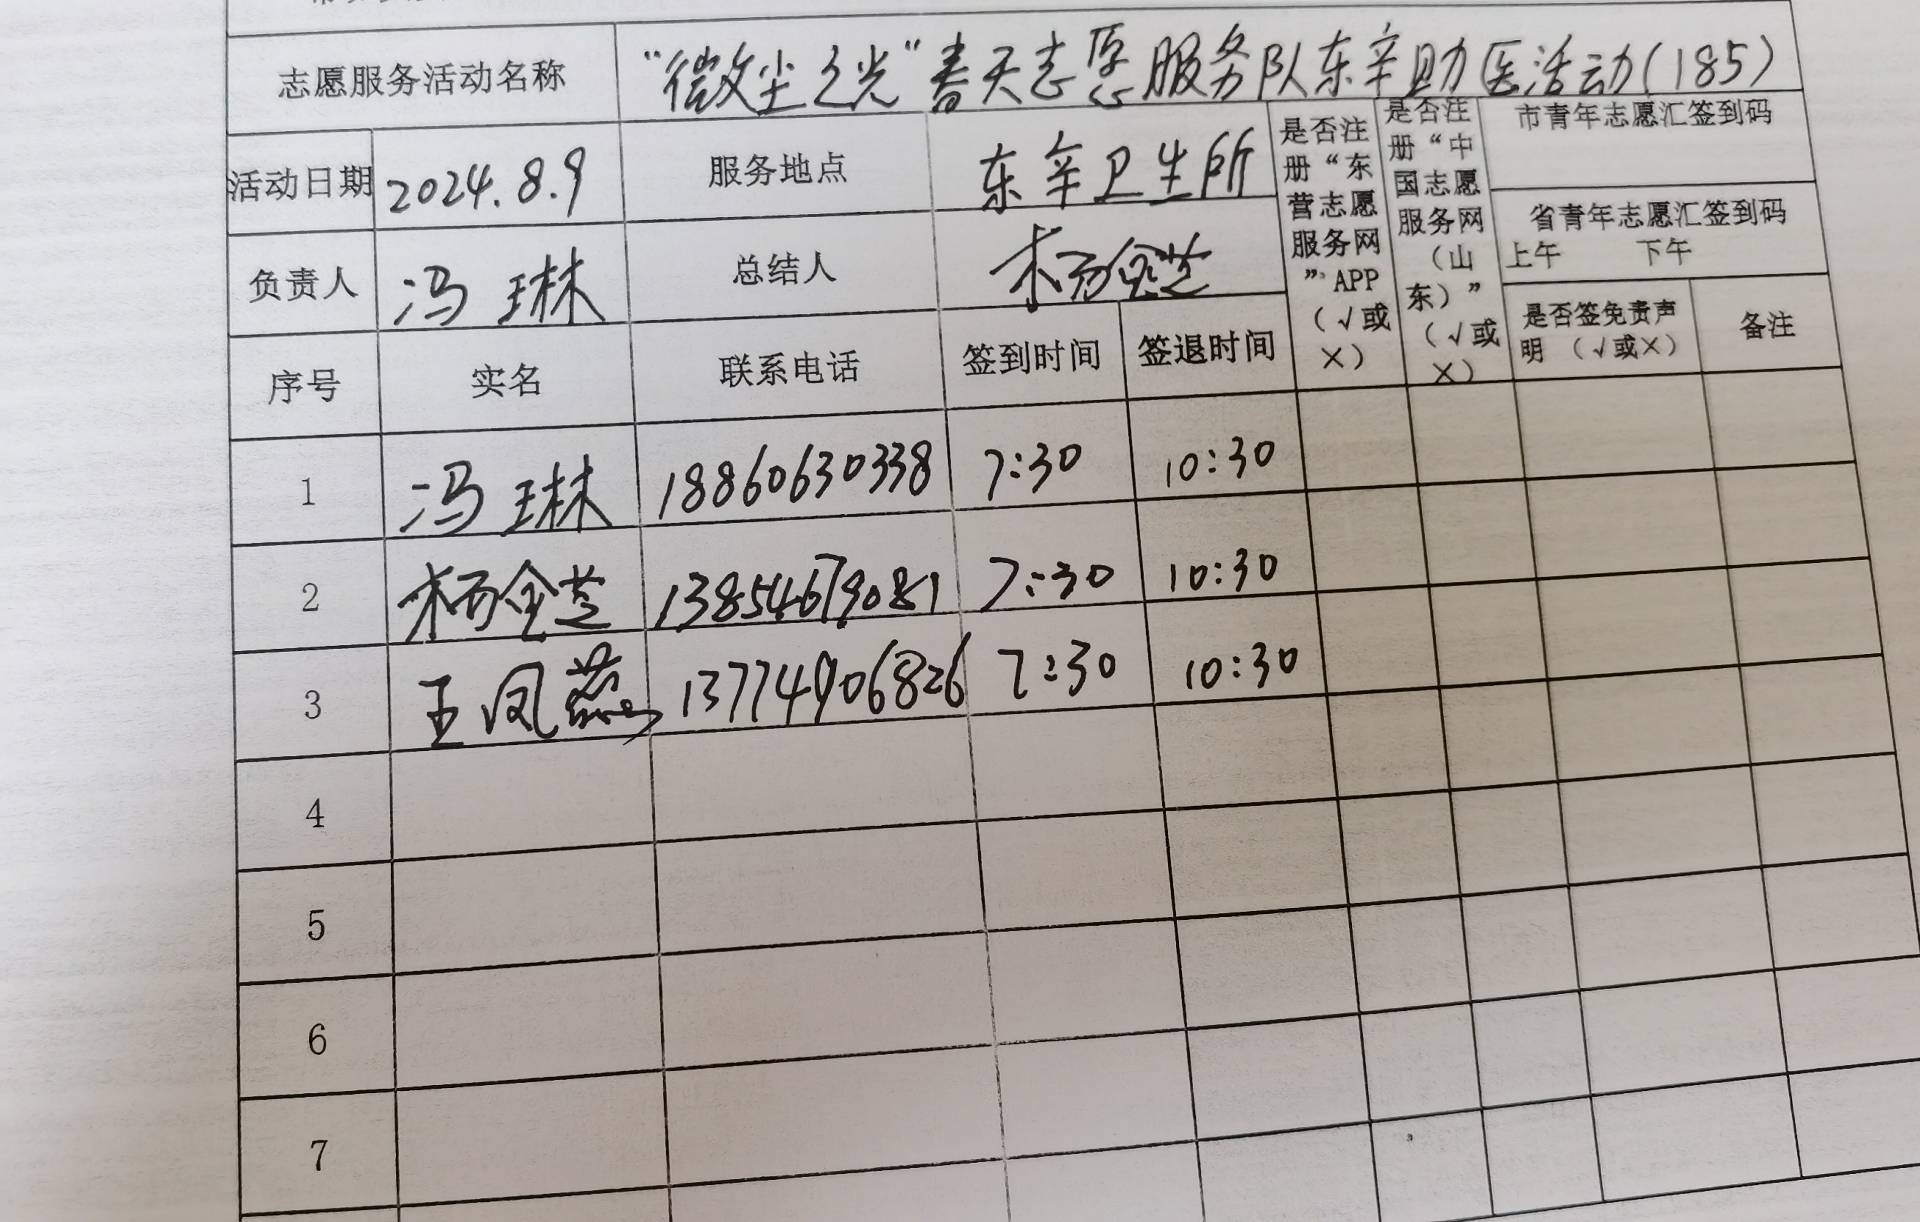 志愿服务活动名称 “微尘之光”春天志愿服务队东辛助医活动(185)
活动日期 2024.8.9 服务地点 东辛卫生所 是否注册“东营志愿服务网”APP（√或×） 是否注册“中国志愿服务网（山东）”（√或×） 市青年志愿汇签到码
省青年志愿汇签到码
上午 下午
负责人 冯琳 总结人 是否签免责声明（√或×） 备注
序号 实名 联系电话 签到时间 签退时间
1 冯琳 18860630338 7:30 10:30
2 13854679081 7:30 10:30
3 王凤燕 13774906826 7:30 10:30
4
5
6
7